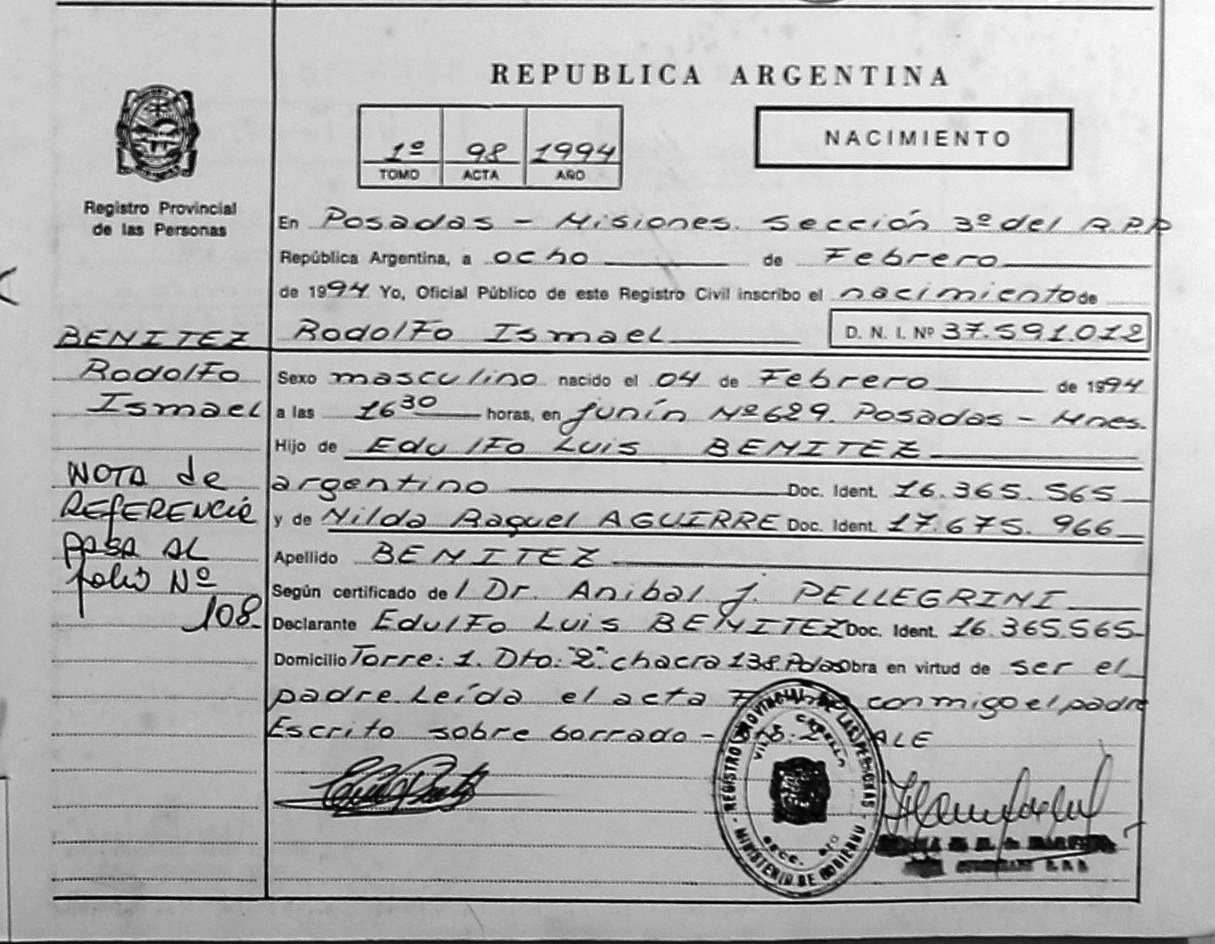 REPUBLICA ARGENTINA
NACIMIENTO
1º 98 1994
TOMO ACTA AÑO
Registro Provincial
de las Personas
En Posadas - Misiones. Sección 3º del R.P.P
República Argentina, a ocho de Febrero
de 1994 Yo, Oficial Público de este Registro Civil inscribo el nacimiento de
Rodolfo Ismael D. N. I. Nº 37.591.012
Sexo masculino nacido el 04 de Febrero de 1994
a las 16 30 horas, en junín Nº 629. Posadas - Mnes.
Hijo de Edulfo Luis BENITEZ
argentino Doc. Ident. 16.365.565
y de Nilda Raquel AGUIRRE Doc. Ident. 17.675.966
Apellido BENITEZ
Según certificado de l Dr. Anibal J. PELLEGRINI
Declarante Edulfo Luis BENITEZ Doc. Ident. 16.365.565
Domicilio Torre: 1. Dto: "2" chacra 138. Pdas Obra en virtud de ser el
padre. Leída el acta conmigo el padre
Escrito sobre borrado - VALE
BENITEZ
Rodolfo
Ismael
NOTA de
REFERENCIA
PASA AL
folio Nº
108.
REGISTRO PROVINCIAL DE LAS PERSONAS
MINISTERIO DE GOBIERNO